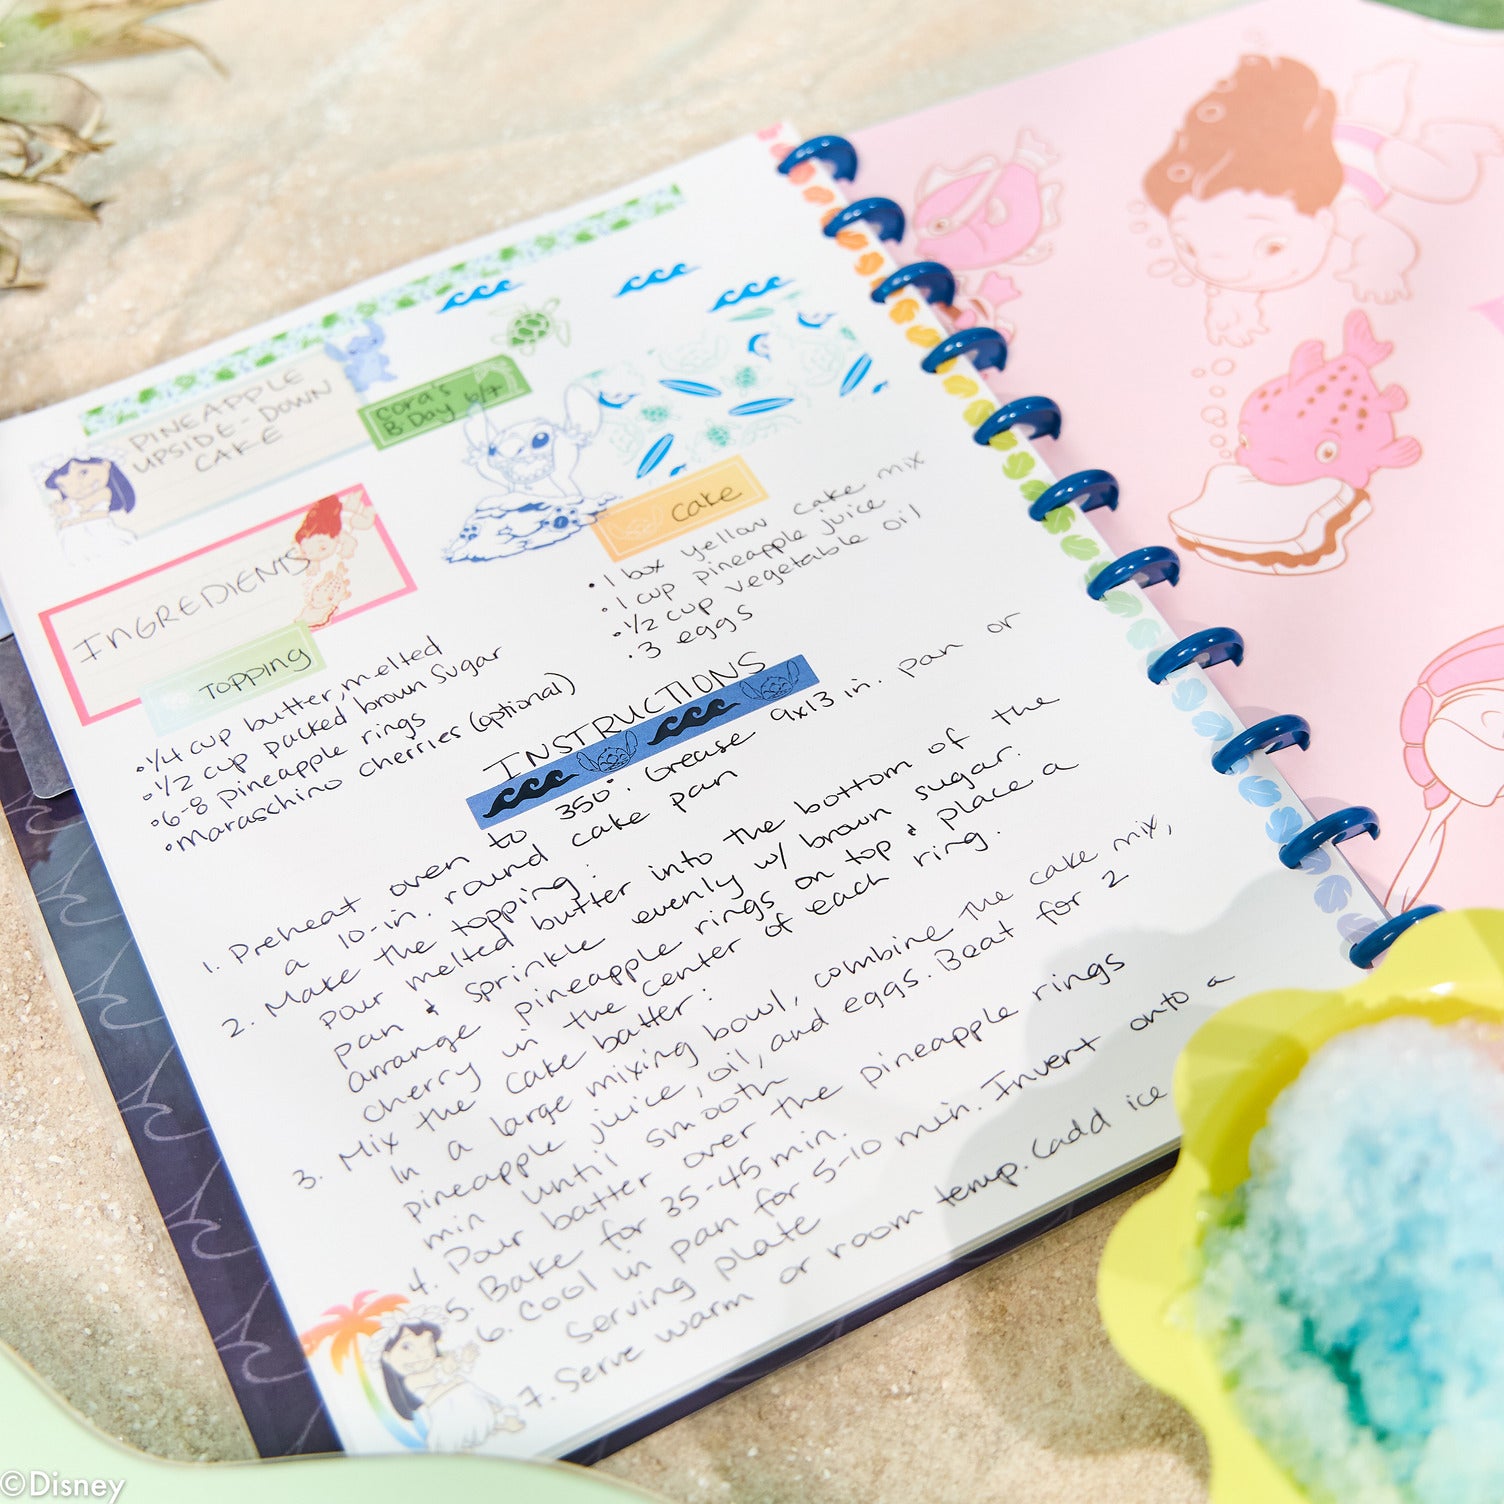 PINEAPPLE
UPSIDE-DOWN
CAKE
Cora's
B-Day 6/7
INGREDIENTS
TOPPING
• 1/4 cup butter, melted
• 1/2 cup packed brown sugar
• 6-8 pineapple rings
• maraschino cherries (optional)
cake
• 1 box yellow cake mix
• 1 cup pineapple juice
• 1/2 cup vegetable oil
• 3 eggs
INSTRUCTIONS
1. Preheat oven to 350°. Grease 9x13 in. pan or
a 10-in. round cake pan
2. Make the topping:
Pour melted butter into the bottom of the
pan & sprinkle evenly w/ brown sugar.
arrange pineapple rings on top & place a
cherry in the center of each ring.
3. Mix the cake batter:
In a large mixing bowl, combine the cake mix,
pineapple juice, oil, and eggs. Beat for 2
min until smooth
4. Pour batter over the pineapple rings
5. Bake for 35-45 min.
6. Cool in pan for 5-10 min. Invert onto a
Serving plate
7. Serve warm or room temp. (add ice
©Disney